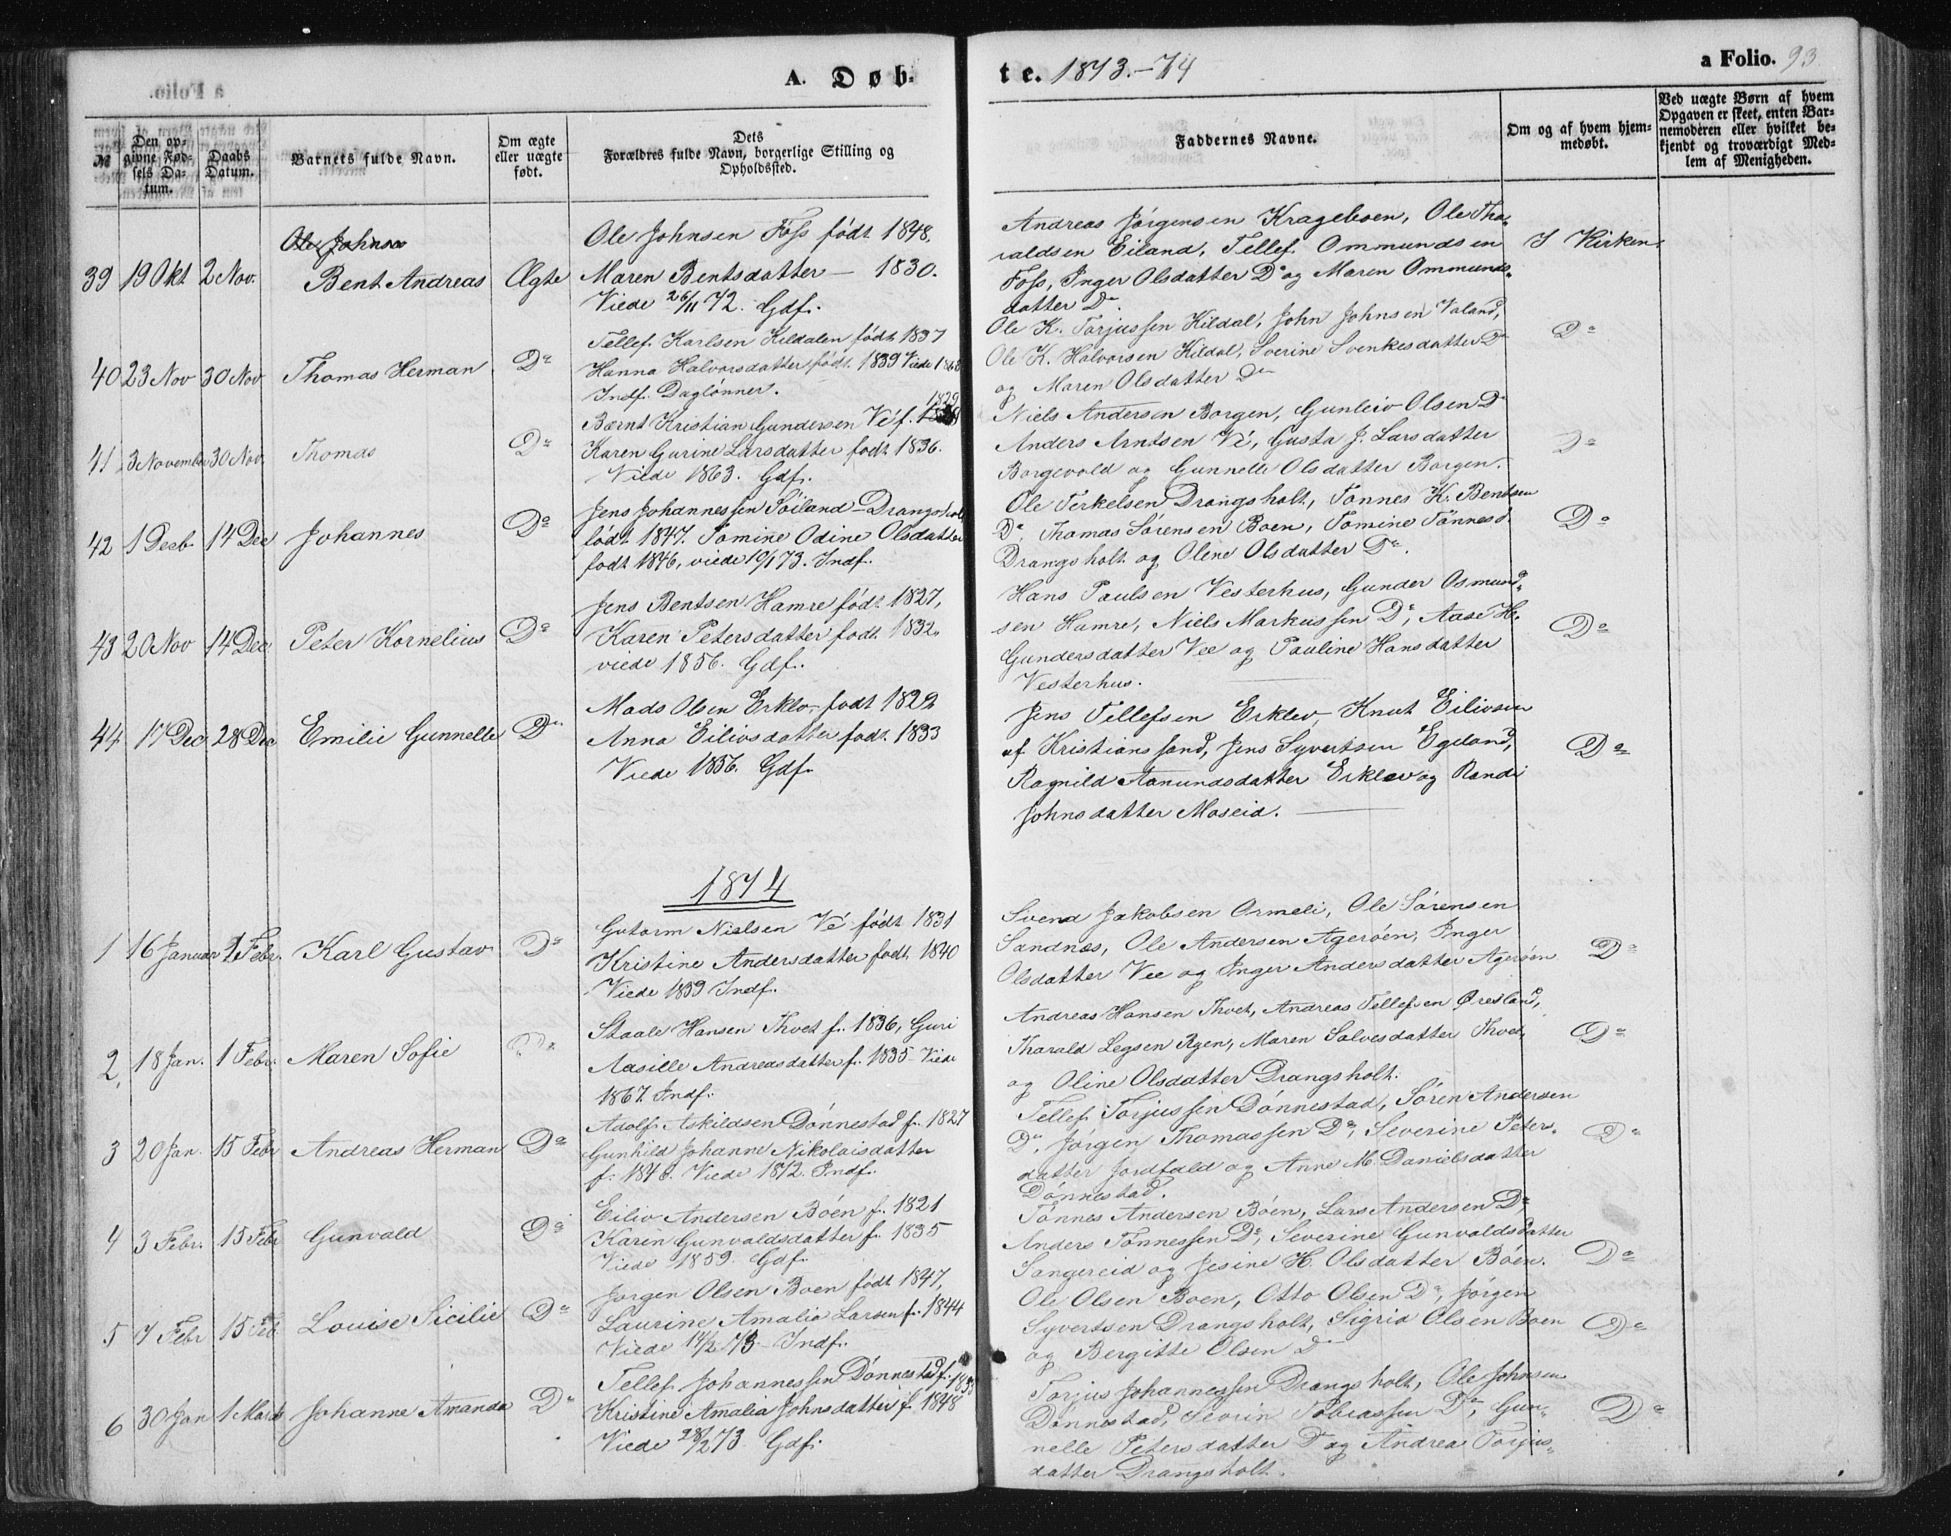 a Folio.
A. Døb-
te. 1873.-74
a Folio. 93
№
Den op-
givne Fød-
sels Da-
tum.
Daabs
Datum.
Barnets fulde Navn.
Om ægte
eller uægte
født.
Dets
Forældres fulde Navn, borgerlige Stilling og
Opholdssted.
Faddernes Navne.
Om og af hvem hjem-
medøbt.
Ved uægte Børn af hvem
Opgaven er skeet, enten Bar-
nemoderen eller hvilket be-
kjendt og troværdigt Med-
lem af Menigheden.
Ole Johnsen
39 19 Okt 2 Nov. Bent Andreas Ægte
Ole Johnsen Foss født 1848,
Maren Bentsdatter — 1830.
Viede 26/11 72. Gdf.
Andreas Jørgensen Krageboen, Ole Tha-
raldsen Eiland, Tellef Ommundsen
Foss, Inger Olsdatter Do og Maren Ommunds-
datter Do.
I Kirken
40 23 Nov 30 Nov Thomas Herman Do
Tellef Karlsen Kildalen født 1837
Hanna Halvorsdatter født 1839 Viede 1868
Indf. Daglønner.
Ole K. Torjussen Kildal, John Johnsen Valand,
Ole K. Halvorsen Kildal, Sverine Svenkesdatter Do
og Maren Olsdatter Do
Do
41 3 November 30 Nov. Thomas Do
1829
Bærnt Kristian Gundersen Vé f.
Karen Gurine Larsdatter født 1836.
Viede 1863. Gdf.
Niels Andersen Borgen, Gunleiv Olsen Do
Anders Arntsen Vé, Gusta J. Larsdatter
Borgevold og Gunnelle Olsdatter Borgen.
Do
42 1 Decb 14 Dec Johannes Do
Jens Johannessen Søiland - Drangsholt
født 1847. Tomine Odine Olsdatter
født 1846, viede 10/1 73. Indf.
Ole Terkelsen Drangsholt, Tønnes K. Bentsen
Do, Thomas Sørensen Boen, Tomine Tønnesd.
Drangsholt og Olene Olsdatter Do.
Do
43 20 Nov 14 Dec Peter Kornelius Do
Jens Bentsen Hamre født 1827,
Karen Petersdatter født 1832.
viede 1856. Gdf.
Hans Paulsen Vesterhus, Gunder Osmund-
sen Hamre, Niels Markussen Do, Aase H.
Gundersdatter Vee og Pauline Hansdatter
Vesterhus.
Do
44 17 Dec 28 Dec Emilie Gunnelle Do
Mads Olsen Erklev, født 1822
Anna Eilivsdatter født 1833
Viede 1856. Gdf.
Jens Tellefsen Erklev, Knut Eilivsen
af Kristianssand, Jens Syvertsen Egeland,
Ragnild Aanundsdatter Erklev og Randi
Johnsdatter Moseid.
Do
1874
1 16 Januar 1 Febr. Karl Gustav Do
Gutorm Nielsen Vé født 1831
Kristine Andersdatter født 1840
Viede 1859 Indf.
Svend Jakobsen Ormeli, Ole Sørensen
Sandnes, Ole Andersen Agerøen, Inger
Olsdatter Vee og Inger Andersdatter Agerøen
Do
2. 18 Jan. 1 Febr. Maren Sofie Do
Staale Hansen Thvet f. 1836, Guri
Aasille Andreasdatter f. 1835 Viede
1867. Indf.
Andreas Hansen Thvet, Andreas Tellefsen Øresland,
Tharald Legsen Ryen, Maren Salvesdatter Thvet,
og Oline Olsdatter Drangsholt.
Do
3 20 Jan. 15 Febr Andreas Herman Do
Adolf Askildsen Dønnestad f. 1827
Gunhild Johanne Nikolaisdatter
f. 1848. Viede 1872. Indf.
Tellef Torjussen Dønnestad, Søren Andersen
Do, Jørgen Thomassen Do, Severine Peters-
datter Jordfald og Anne M. Danielsdatter
Dønnestad.
Do
4 3 Febr. 15 Febr Gunvald Do
Eiliv Andersen Bøen f. 1821
Karen Gunvaldsdatter f. 1835
Viede 1859. Gdf.
Tønnes Andersen Bøen, Lars Andersen Do,
Anders Tønnessen Do, Severine Gunvaldsdatter
Sangereid og Jesine H. Olsdatter Bøen.
Do
5 7 Febr 15 Feb. Louise Sicilie Do
Jørgen Olsen Boen født 1847,
Laurine Amalia Larsen f. 1844
Viede 14/2 73 Indf.
Ole Olsen Boen, Otto Olsen Do, Jørgen
Syvertsen Drangsholt, Sigrid Olsen Boen
og Bergitte Olsen D
Do
6 30 Jan 1 Marts Johanne Amanda Do
Tellef Johannessen Dønnestad f. 1838
Kristine Amalia Johnsdatter f. 1848
Viede 28/2 73 Gdf.
Torjus Johannessen Drangsholt, Ole Johnsen
Dønnestad, Sevrin Tobiassen Do, Gun-
nelle Petersdatter D og Andrea Torjus-
datter Drangsholt.
Do